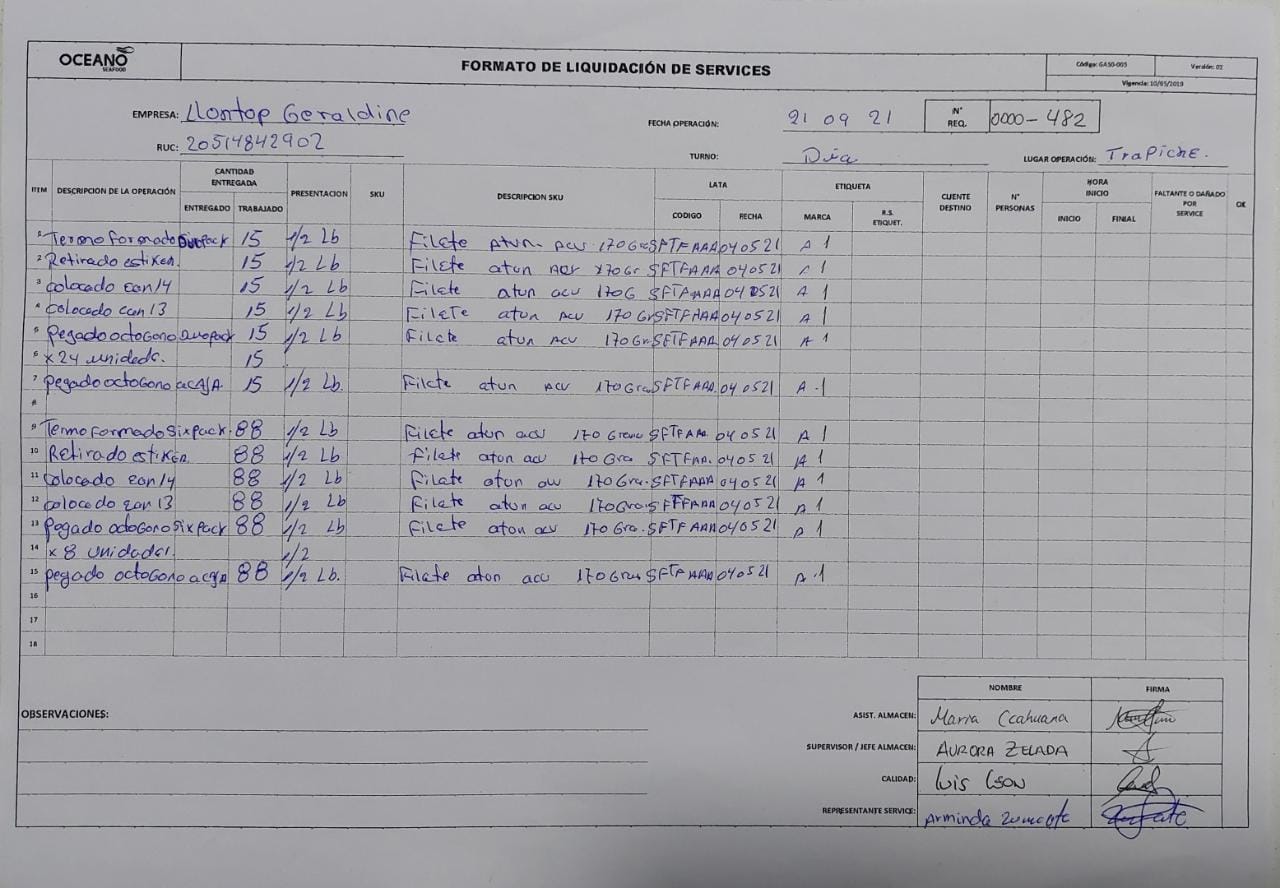 OCEANO
SEAFOOD
FORMATO DE LIQUIDACIÓN DE SERVICES
Código: GASO-005 Versión: 02
Vigencia: 10/05/2019
EMPRESA: Llontop Geraldine
RUC: 20514842902
FECHA OPERACIÓN: 21 09 21
N° REQ. 0000-482
TURNO: Dia
LUGAR OPERACIÓN: TraPichE.
ITEM DESCRIPCION DE LA OPERACIÓN CANTIDAD ENTREGADA PRESENTACION SKU DESCRIPCION SKU LATA ETIQUETA CLIENTE DESTINO N° PERSONAS HORA INICIO FALTANTE O DAÑADO POR SERVICE OK
ENTREGADO TRABAJADO CODIGO FECHA MARCA R.S. ETIQUET. INICIO FINIAL
1 Termo formado 15 1/2 Lb Filete Atun Acv 170Gr SFTFAAA 040521 A 1
2 Retirado estiker. 15 1/2 Lb Filete atun 170Gr SFTFAAA 040521 A 1
3 colocado ean14 15 1/2 Lb Filete atun acv 170G SFTFAAA 040521 A 1
4 colocado ean13 15 1/2 Lb FileTe atun Acv 170Gr SFTFAAA 040521 A 1
5 pegado octogono Duopack 15 1/2 Lb Filete atun Acv 170Gr SFTFAAA 040521 A 1
6 x 24 unideds. 15
7 pegado octoGono acAJA 15 1/2 Lb. Filete atun Acv 170Gra SFTFAAA 040521 A 1
8
9 Termo formado Sixpack. 88 1/2 Lb Filete atun acv 170 SFTFAAA 040521 A 1
10 Retirado estiKer 88 1/2 Lb Filete aton acv 170 Gra SFTFAAA. 040521 A 1
11 colocado ean14 88 1/2 Lb Filate aton 170Gra. SFTFAAA 040521 A 1
12 colocado ean13 88 1/2 Lb Filete aton acv 170Gra. SFTFAAA 040521 A 1
13 pegado octogono Sixpack 88 1/2 Lb Filete aton acv 170 Gra. SFTFAAA 040521 A 1
14 x 8 unidades. 1/2
15 pegado octogono acaja 88 1/2 Lb. Filete aton acv 170 SFTFAAA 040521 A 1
16
17
18
NOMBRE FIRMA
OBSERVACIONES:
ASIST. ALMACEN: Maria Ccahuana
SUPERVISOR / JEFE ALMACEN: AURORA ZELADA
CALIDAD: Luis
REPRESENTANTE SERVICE: Arminda